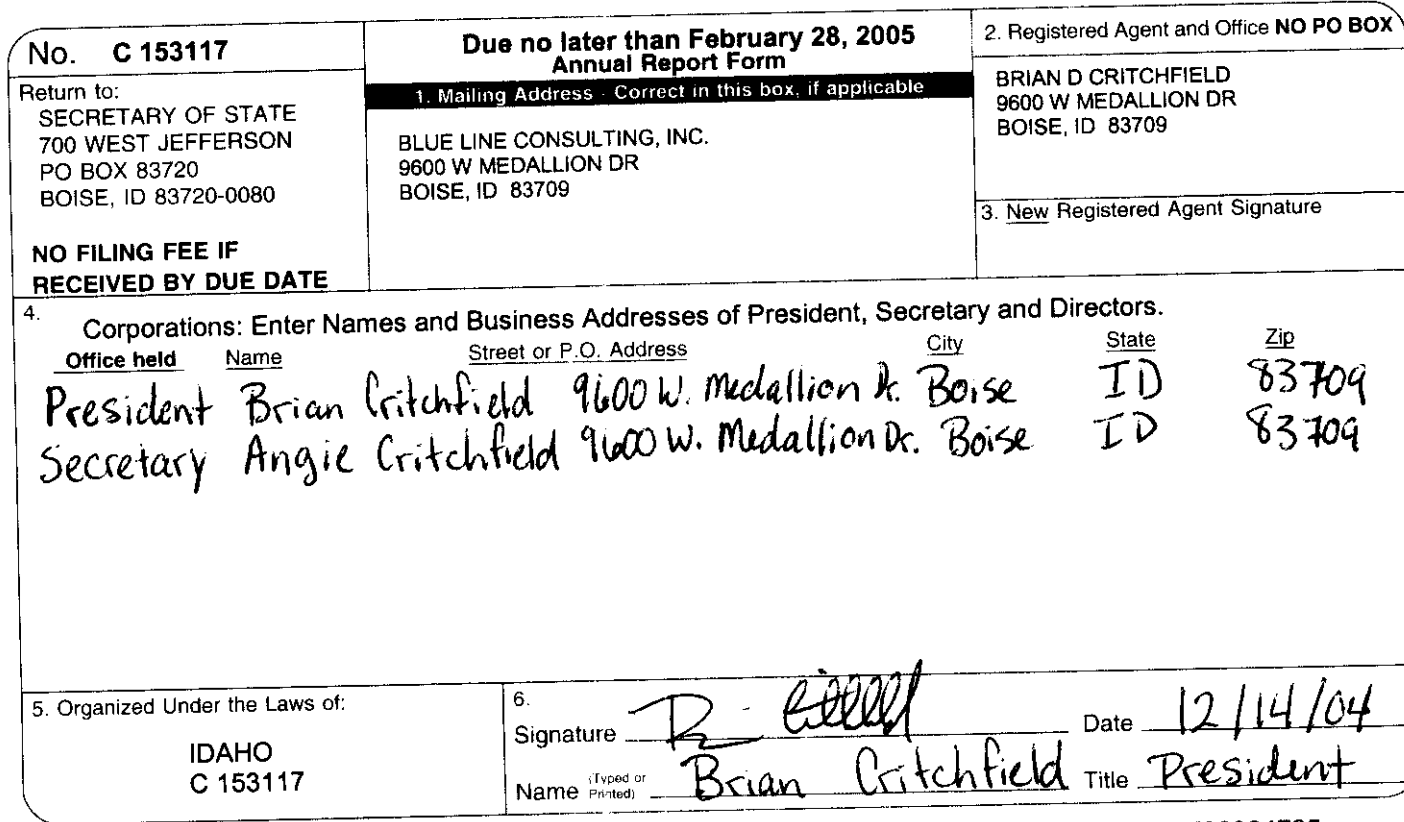 No. C 153117
Return to:
SECRETARY OF STATE
700 WEST JEFFERSON
PO BOX 83720
BOISE, ID 83720-0080
NO FILING FEE IF
RECEIVED BY DUE DATE
Due no later than February 28, 2005
Annual Report Form
1. Mailing Address - Correct in this box, if applicable
BLUE LINE CONSULTING, INC.
9600 W MEDALLION DR
BOISE, ID 83709
2. Registered Agent and Office NO PO BOX
BRIAN D CRITCHFIELD
9600 W MEDALLION DR
BOISE, ID 83709
3. New Registered Agent Signature
4. Corporations: Enter Names and Business Addresses of President, Secretary and Directors.
Office held Name Street or P.O. Address City State Zip
President Brian Critchfield 9600 W. Medallion Dr. Boise ID 83709
Secretary Angie Critchfield 9600 W. Medallion Dr. Boise ID 83709
5. Organized Under the Laws of:
IDAHO
C 153117
6.
Signature Date 12/14/04
Name (Typed or Printed) Brian Critchfield Title President